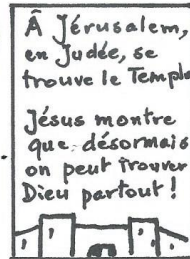 À Jérusalem,
en Judée, se
trouve le Temple
Jésus montre
que désormais
on peut trouver
Dieu partout !